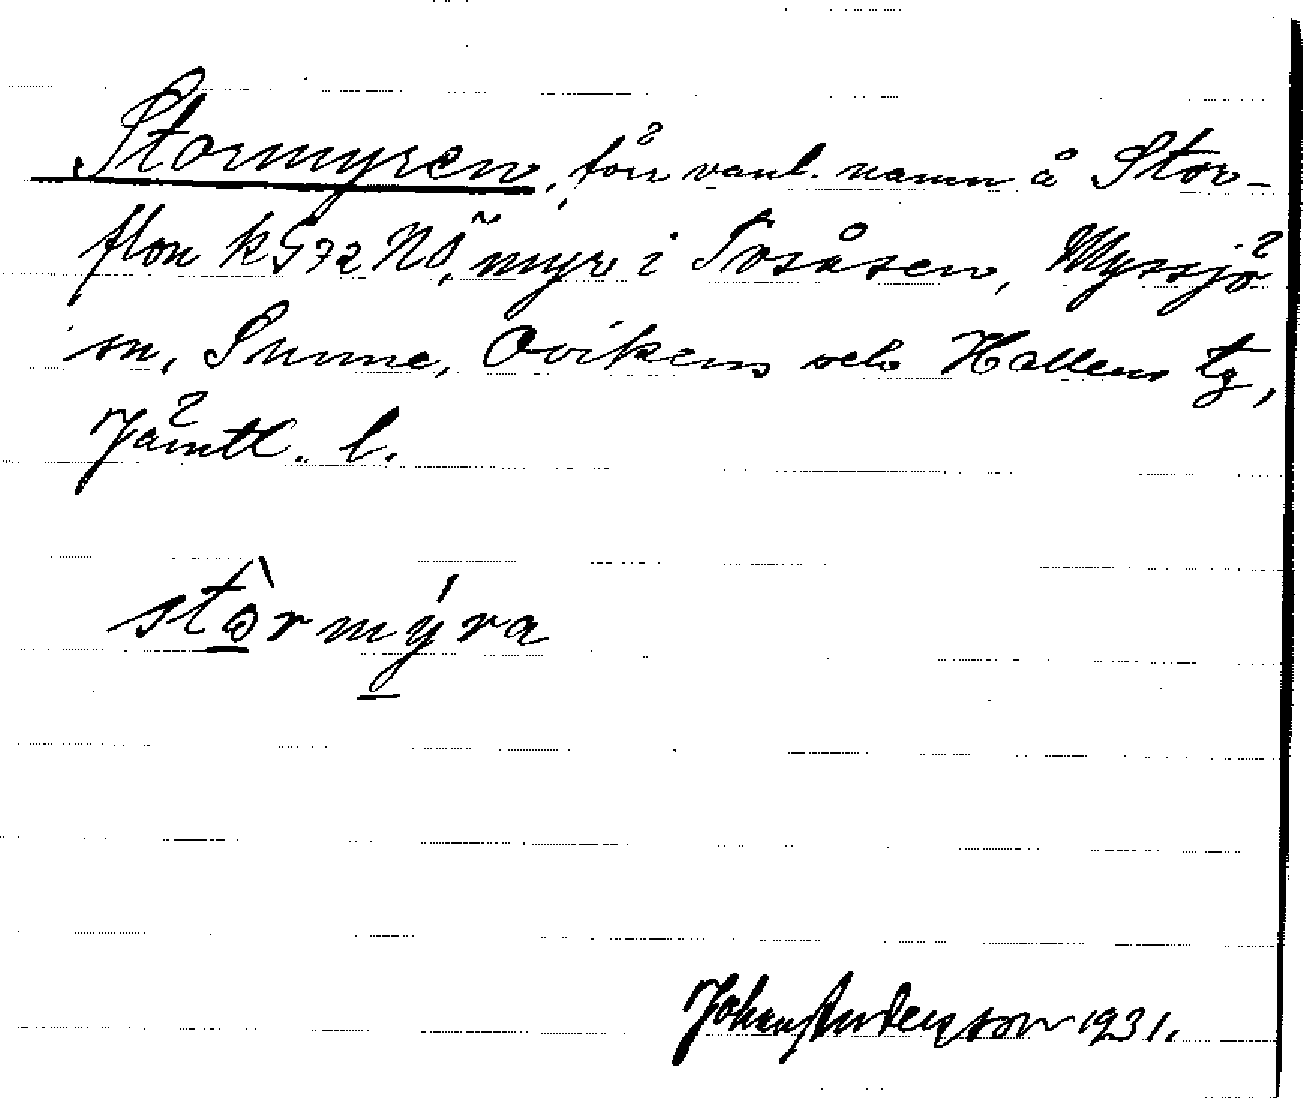 Stormyren, förr vanl. namn å Stor-
flon k G 72 NÖ, myr i Tossåsen, Myssjö
sn, Sunne, Ovikens och Hallens tg,
Jämtl. l.
stòrmýra
Johan Andersson 1931.